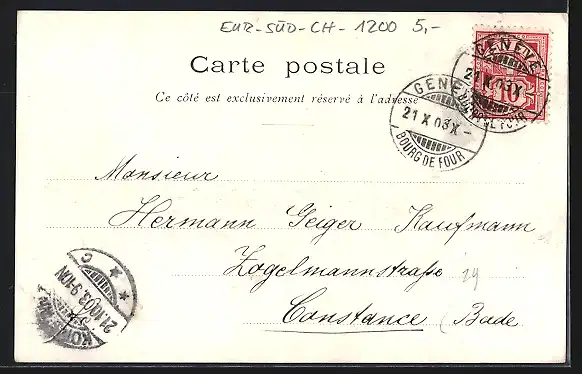 EUR-SÜD-CH-1200 5,-
Carte postale
Ce côté est exclusivement réservé à l'adresse
GENÈVE
21 X 03 X-
BOURG DE FOUR
GENÈVE
21 X 03 X-
10
Monsieur
Hermann Geiger Kaufmann
Zogelmannstraße 29
Constance (Bade
21.10.03. 9-10N
* C *